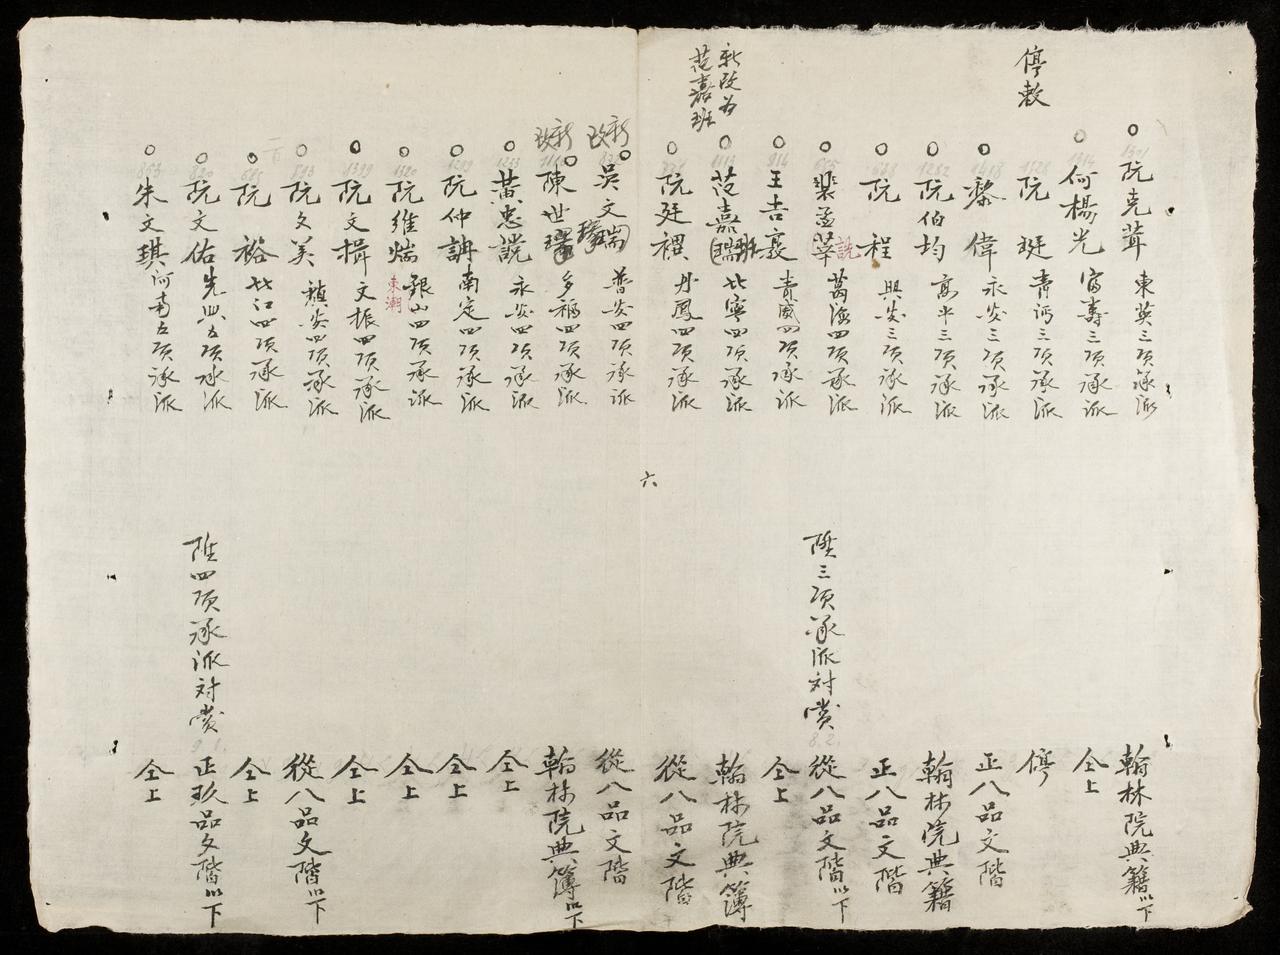 阮克茸 東英三項承派 翰林院典籍以下
何楊光 富壽三項承派 仝上
停敕
阮珽 青沔三項承派 停
黎偉 永安三項承派 正八品文階
阮伯均 高平三項承派 翰林院典籍
阮程 興安三項承派 正八品文階
陞三項承派対賞
裴孟莘 詵 葛海四項承派 從八品文階以下
王吉 青威四項承派 仝上
新改为
范嘉班
范嘉瑞 班 北寧四項承派 翰林院典簿
阮廷 丹鳳四項承派 從八品文階
六
新改
吳文瑞 璨 普安四項承派 從八品文階
新改
陳世 多福四項承派 翰林院典簿以下
黃忠說 永安四項承派 仝上
阮仲訥 南定四項承派 仝上
阮維煓 東潮 銀山四項承派 仝上
阮文楫 文振四項承派 仝上
阮文美 鎮安四項承派 從八品文階以下
阮裕 北江四項承派 仝上
陞四項承派対賞
阮文佑 先興五項承派 正玖品文階以下
朱文琪 河南五項承派 仝上